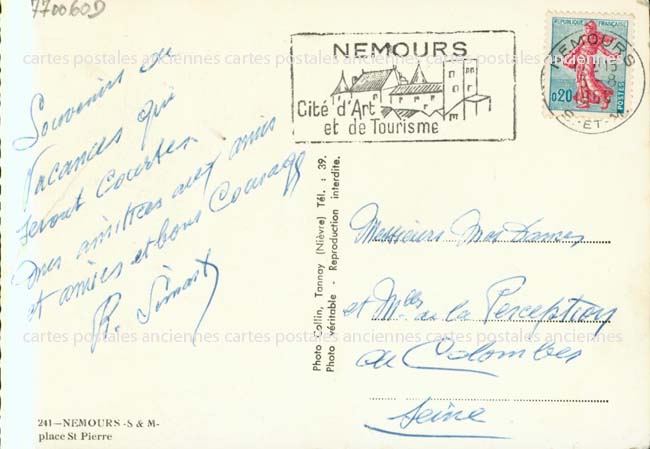 770060D
Souvenirs de
Vacances qui
seront Courtes.
Mes amitiées aux amis
et amies et bons Courage
R. Simart
241—NEMOURS -S & M-
place St Pierre
NEMOURS
Cité d'Art
et de Tourisme
REPUBLIQUE FRANÇAISE
0,20
POSTES
NEMOURS
S.-ET-M.
Photo Collin, Tannay (Nièvre) Tél. : 39.
Photo véritable - Reproduction interdite.
Messieurs Mesdames
et Melles de la Perception
de Colombes
Seine
cartes postales anciennes cartes postales anciennes cartes postales anciennes
cartes postales anciennes cartes postales anciennes cartes postales anciennes